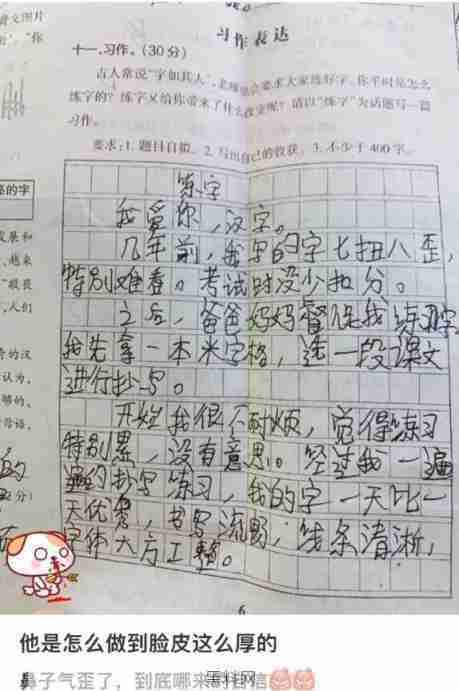 习作表达
十一、习作。(30分)
古人常说“字如其人”,老师总会要求大家练好字。你平时是怎么
练字的?练字又给你带来了什么改变呢?请以“练字”为话题写一篇
习作。
要求:1.题目自拟。2.写出自己的收获。3.不少于400字。
练字
我爱你,汉字。
几年前,我写的字七扭八歪,
特别难看。考试时没少扣分。
之后,爸爸妈妈督促我练习字
我先拿一本米字格,选一段课文
进行抄写。
开始我很不耐烦,觉得练习
特别累,没有意思。经过我一遍
遍的抄写练习,我的字一天比一
天优秀,书写流畅,线条清淅,
字体大方工整。
6
他是怎么做到脸皮这么厚的
鼻子气歪了,到底哪来的自信